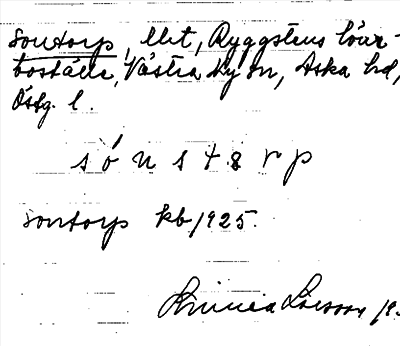 Sontorp, llrt, Ryggstens löur-
boställe, Västra Ny sn, Aska hd,
Östg. l.
s ó n s t 8 r p
Sontorp kb 1925.
Linnea Larsson